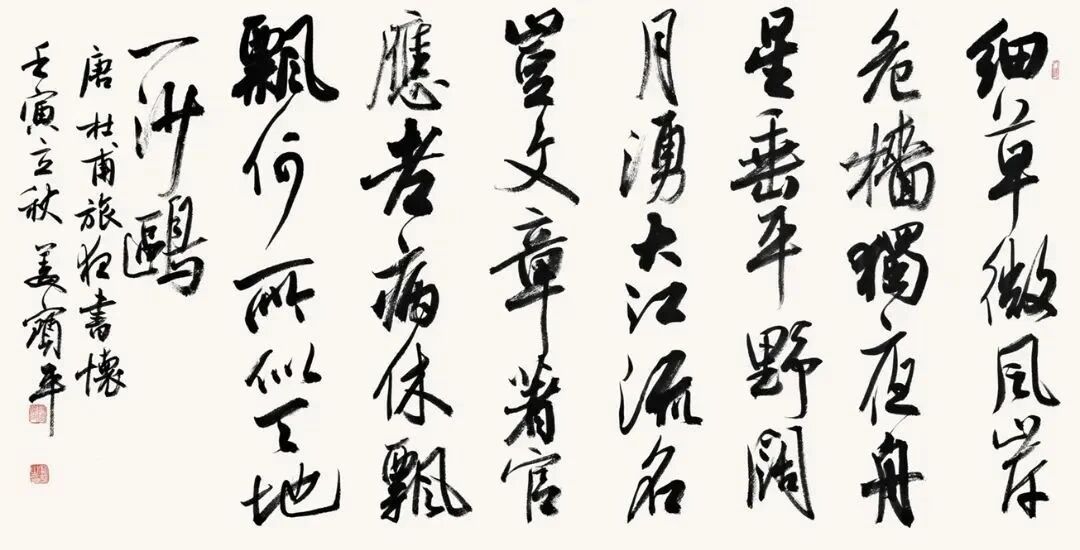 細草微風岸
危檣獨夜舟
星垂平野闊
月湧大江流名
豈文章著官
應老病休飄
飄何所似天地
一沙鷗
唐杜甫旅夜書懷
壬寅立秋